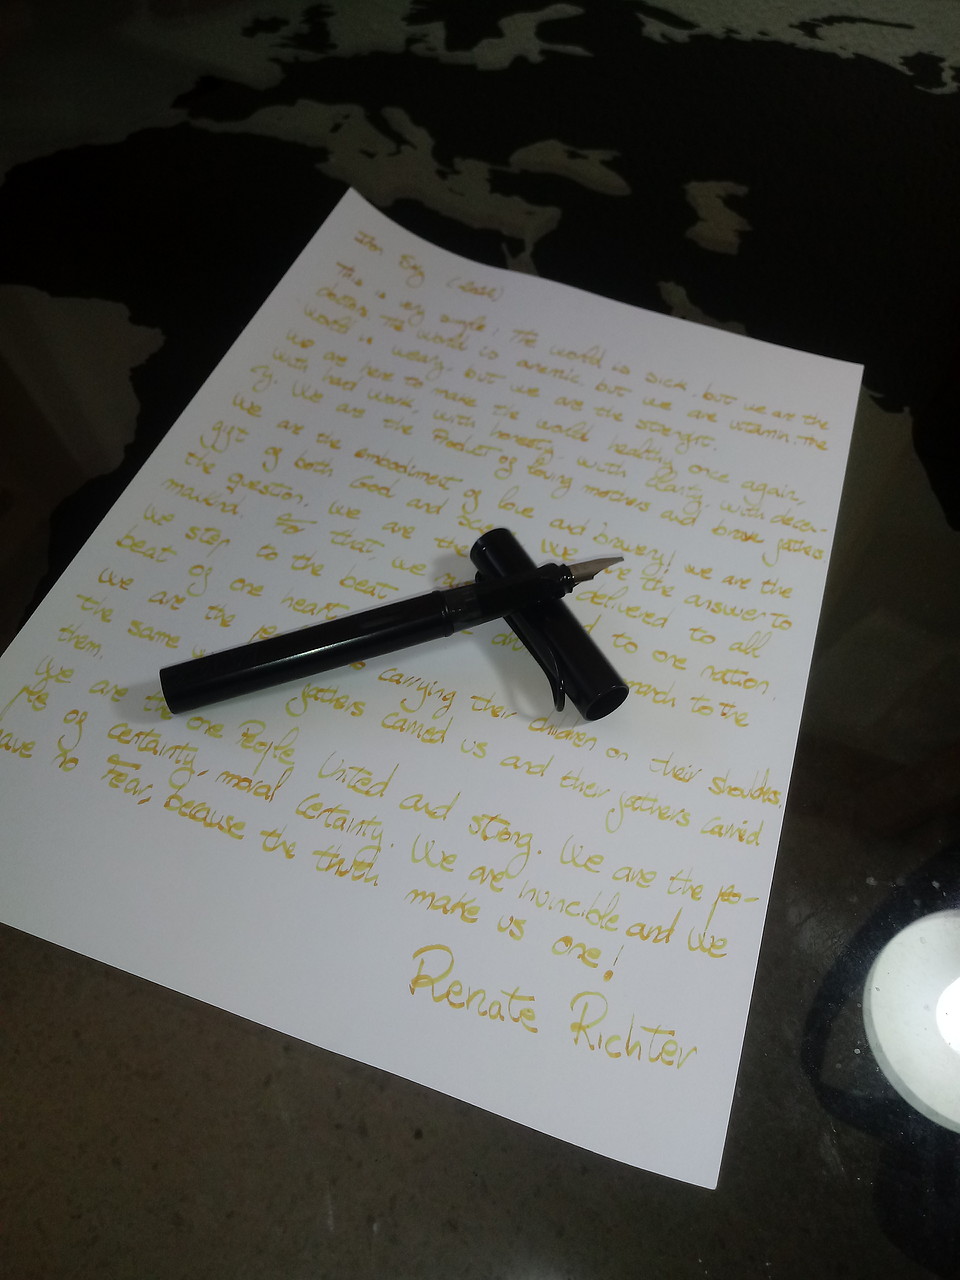 Iron Sky
This is very simple: The world is sick, but we are the
doctors. The world is anemic, but we are vitamin. The
world is weary, but we are the strenght.
We are here to make the world healthy once again,
with hard work, with honesty, with clarity, with decen-
cy. We are the Product of loving mothers and brave fathers
We are the embodiment of love and bravery! We are the
gift of both God and We are the answer to
the question. We are the delivered to all
mankind. that, we to one nation.
We step to the beat march to the
beat of one heart
We are the carrying their children on their shoulders.
the same fathers carried us and their fathers carried
them.
We are the one People. United and strong. We are the peo-
ple of certainty, moral certainty. We are invincible and we
have no Fear, because the truth make us one!
Renate Richter